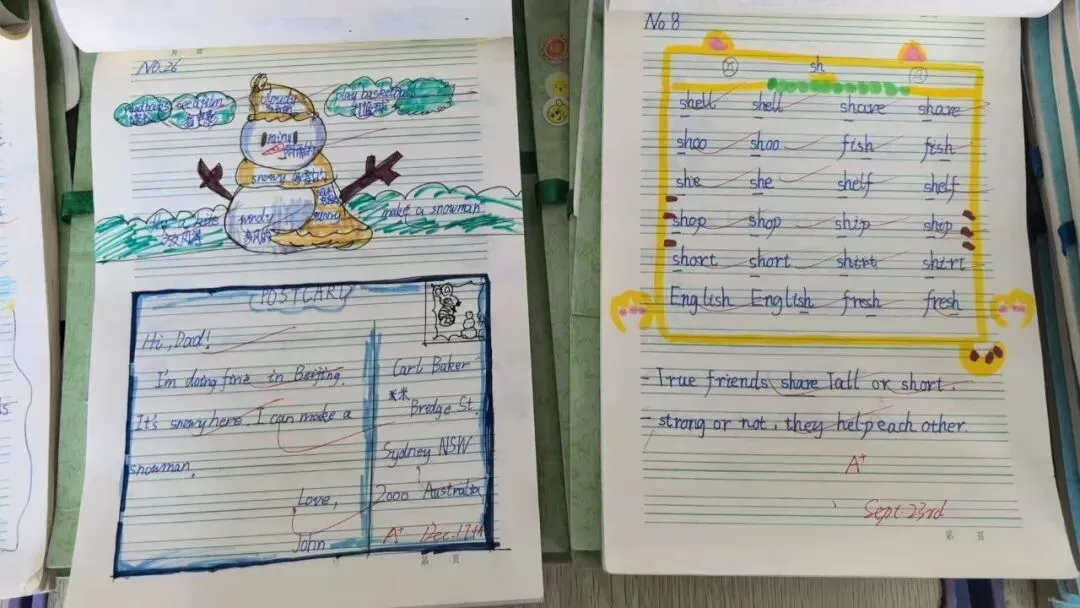 No.26
see a film
看电影
play basketball
打篮球
cloudy
rainy
snowy
windy
多风的
sunny
make a snowman
POSTCARD
Hi, Dad!
I'm doing fine in Beijing.
It's snowy here. I can make a
snowman.
Love,
John
Carl Baker
Bridge St.
Sydney NSW
2000 Australia
A+ Dec. 17th
第 页
No 8
sh
shell shell share share
shoo shoo fish fish
she she shelf shelf
shop shop ship ship
short short shirt shirt
English English fresh fresh
- True friends share Tall or short.
- strong or not, they help each other.
A+
Sept. 23rd
第 页